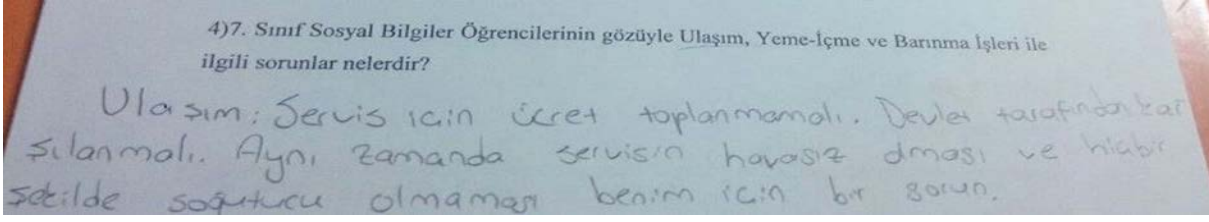 4)7. Sınıf Sosyal Bilgiler Öğrencilerinin gözüyle Ulaşım, Yeme-İçme ve Barınma İşleri ile
ilgili sorunlar nelerdir?
Ulaşım: Servis için ücret toplanmamalı. Devlet tarafından kar
şılanmalı. Aynı zamanda servisin havasız olması ve hiçbir
şekilde soğutucu olmaması benim için bir sorun.